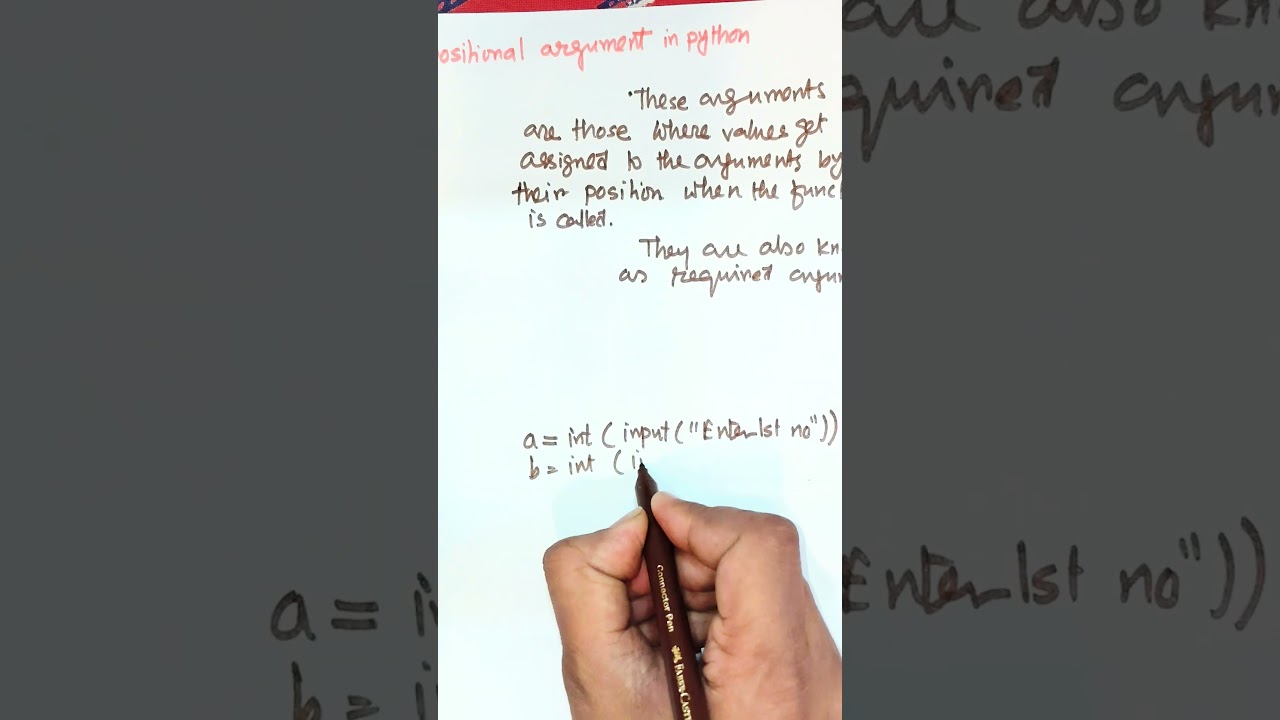 ositional argument in python
•These arguments
are those where values get
assigned to the arguments by
their position when the funct
is called.
They are also kn
as required argum
a = int (input ("Enter 1st no"))
b = int (i
Connector Pen
FABER-CAST